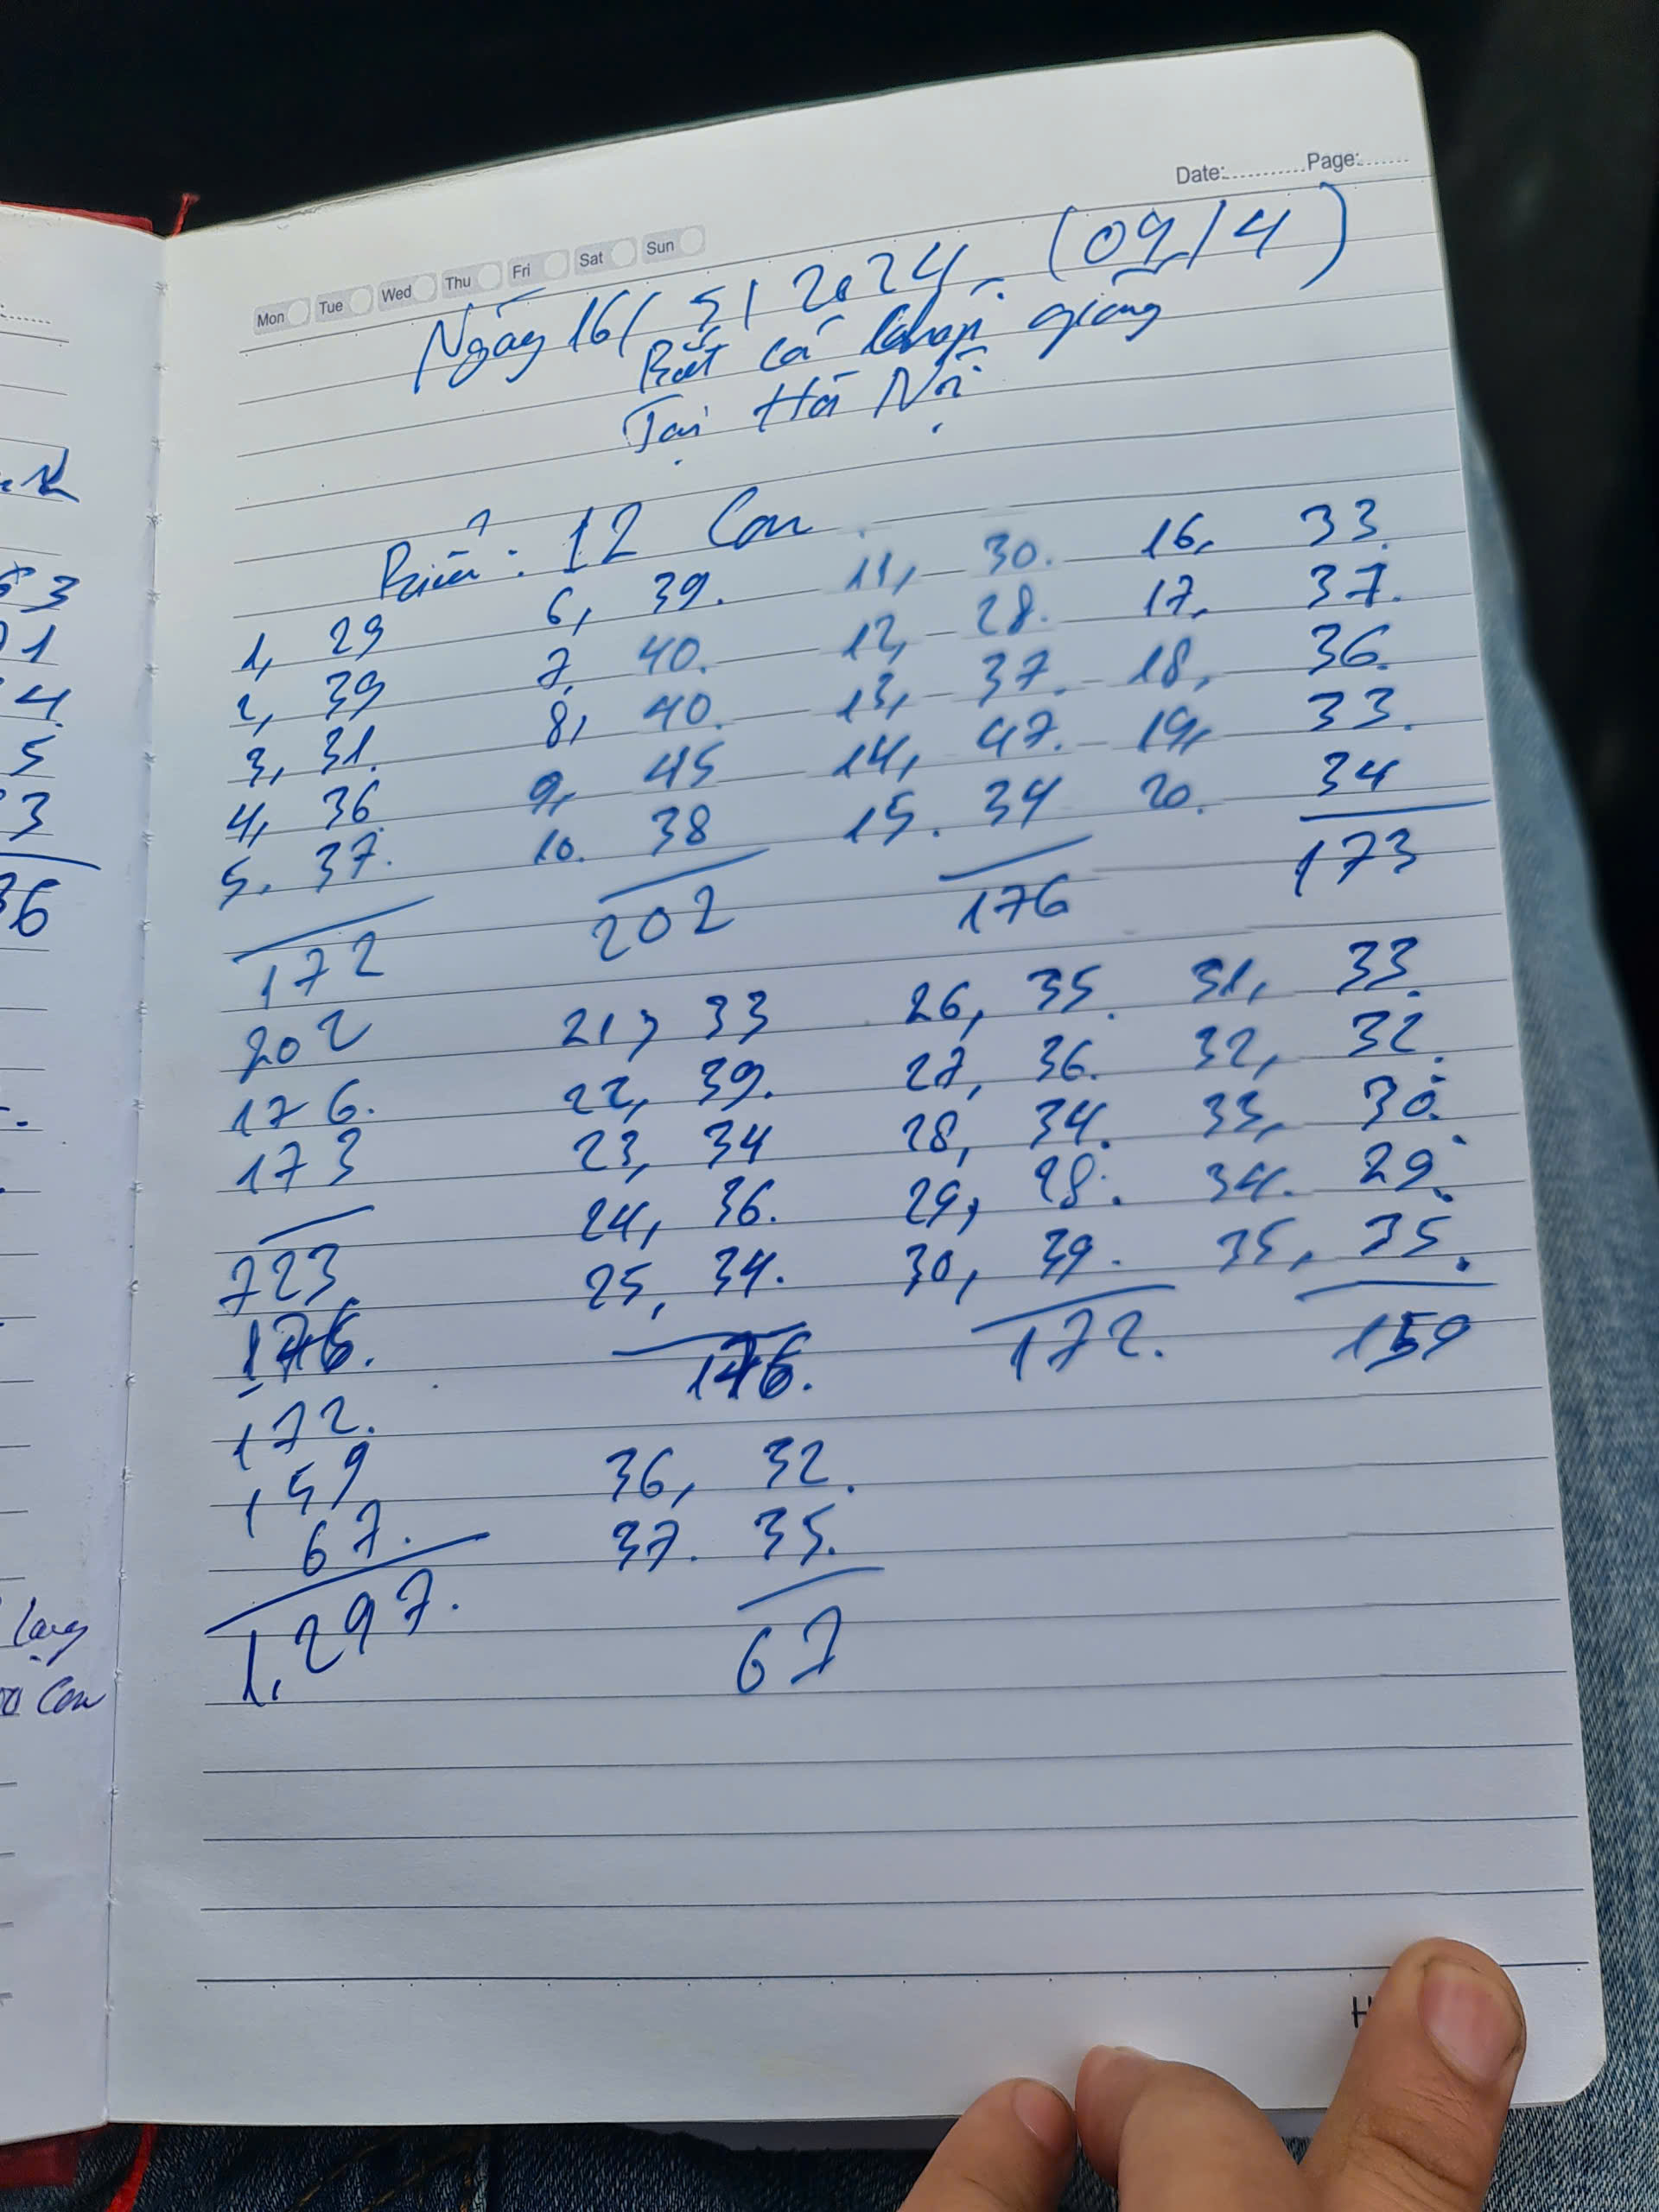 Date:............Page:.......
Mon Tue Wed Thu Fri Sat Sun
Ngày 16/5/2024. (09/4)
Bắt cá giống
Tại Hà Nội
12 Con
1, 29 6, 39. 11, 30. 16, 33.
2, 39 7, 40. 12, 28. 17, 37.
3, 31. 8, 40. 13, 37. 18, 36.
4, 36. 9, 45 14, 47. 19, 33.
5. 37. 10. 38 15. 34 20. 34
172 202 176 173
202 21, 33 26, 35. 31, 33.
176. 22, 39. 27, 36. 32, 32.
173 23, 34 28, 34. 33, 30.
24, 36. 29, 28. 34. 29.
723. 25, 34. 30, 39. 35, 35.
176. 176. 172. 159
172.
159 36, 32.
67. 37. 35.
1,297. 67
53
01
4.
5
3
36
lạng
Con